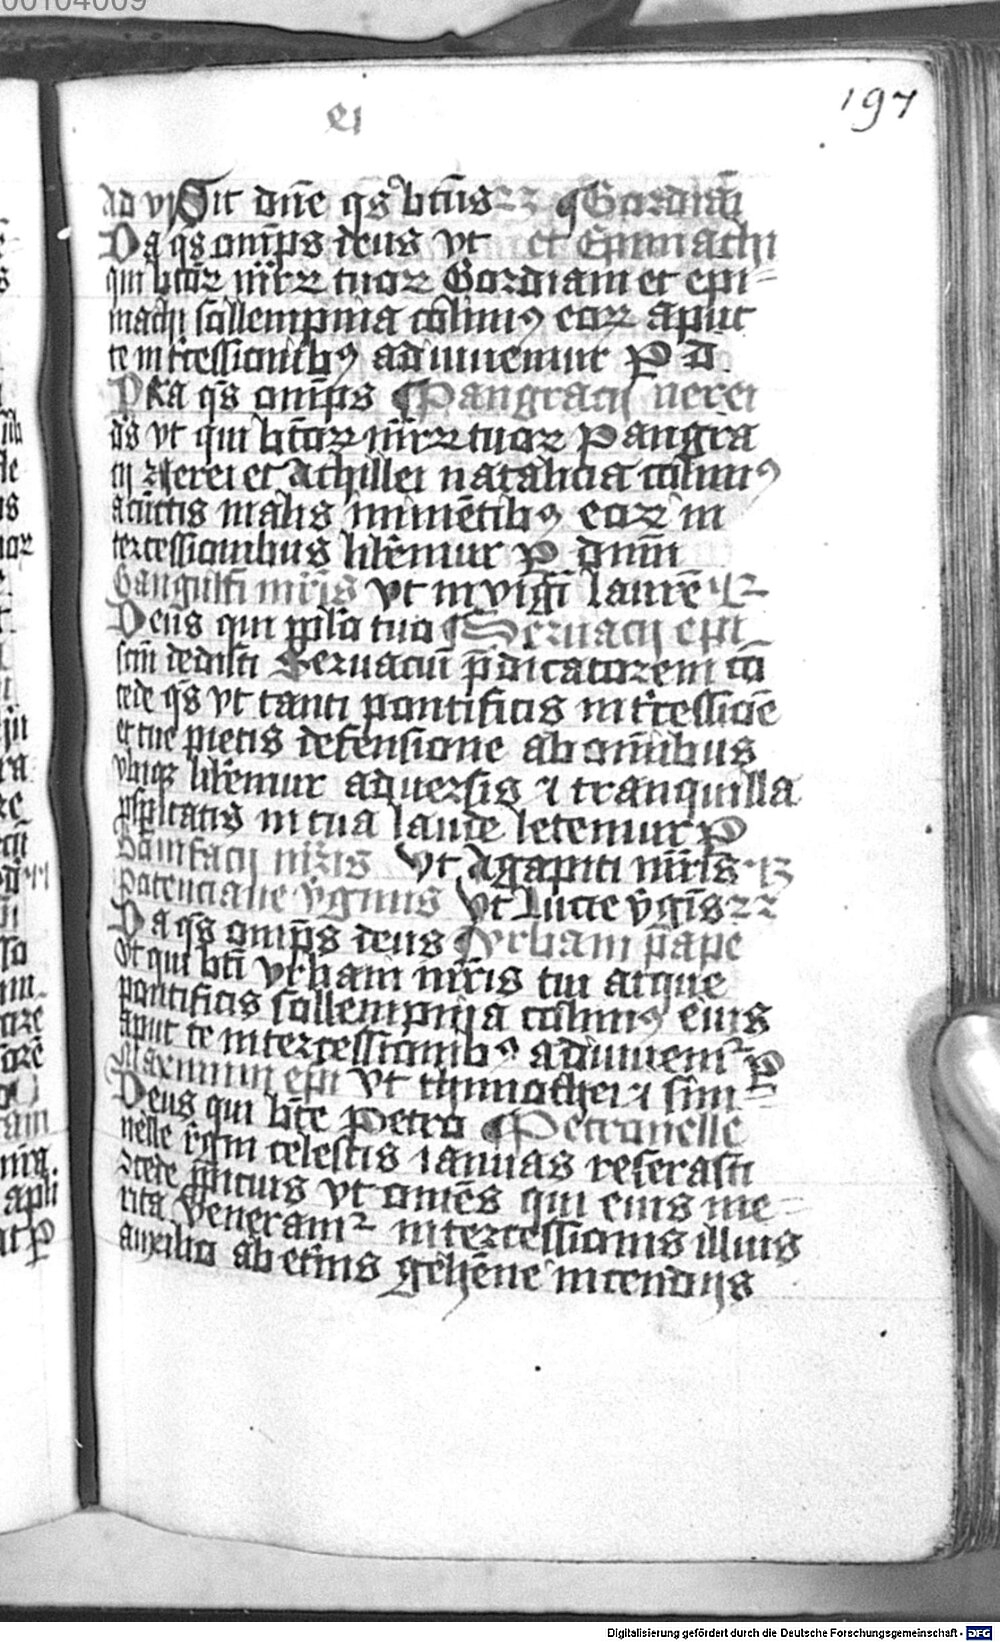 197
Ad vj Sit dn̄e q̄s btūs 22 Gordiāi
Da q̄s omīps deus vt et Epimachi
qui btōꝝ mr̄ꝝ tuoꝝ Gordiani et epi-
machi sollempnia colimꝯ eoꝝ aput
te int̄cessionibꝯ adiuuemur P D
Pra q̄s omīps Pangracij nerei
ds vt qui btōꝝ mr̄ꝝ tuoꝝ Pangra
cij Nerei et Achillei natalicia colimꝯ
a cūctis malis iminētibꝯ eoꝝ in
tercessionibus libemur P dnm̄
Gangulfi mr̄is vt in vigi laurē
Deus qui pplo tuo Seruacij epi
scm̄ dedisti Seruaciū p̄dicatorem cō
cede q̄s vt tanti pontificis int̄cessioē
et tue pietis defensione ab omībus
vbiqꝫ libemur aduersis ⁊ tranquilla
ꝓspitatis in tua laude letemur P
Bonifacij mr̄is vt Agapiti mr̄is
Potenciane v̄ginis vt Lucie v̄gīs 22
Da q̄s omīps deus Vrbani pape
vt qui bti vrbani mr̄is tui atque
pontificis sollempnia colimꝯ eius
aput te intercessionibꝯ adiuuem̄ P
Maximini epi vt thimothei ⁊ sim
Deus qui bte Petro Petronelle
nelle v̄gīi celestis ianuas reserasti
ꝯcede ꝓpicius vt omēs qui eius me-
rita veneram̄ intercessionis illius
auxilio ab etnis gehēne incendijs
Digitalisierung gefördert durch die Deutsche Forschungsgemeinschaft - DFG